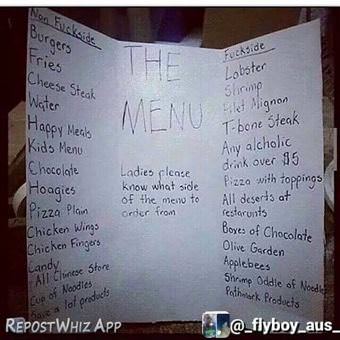 Non Fuckside
Burgers
Fries
Cheese Steak
Water
Happy Meals
Kids Menu
Chocolate
Hoagies
Pizza Plain
Chicken Wings
Chicken Fingers
Candy
All Chinese Store
Cup of Noodles
have a lot products
THE
MENU
Ladies please
know what side
of the menu to
order from
Fuckside
Lobster
Shrimp
Filet Mignon
T-bone Steak
Any alcholic
drink over $5
Pizza with toppings
All deserts at
restarunts
Boxes of Chocolate
Olive Garden
Applebees
Shrimp Oddle of Noodle
Pathmark Products
REPOSTWHIZ APP
@_flyboy_aus_